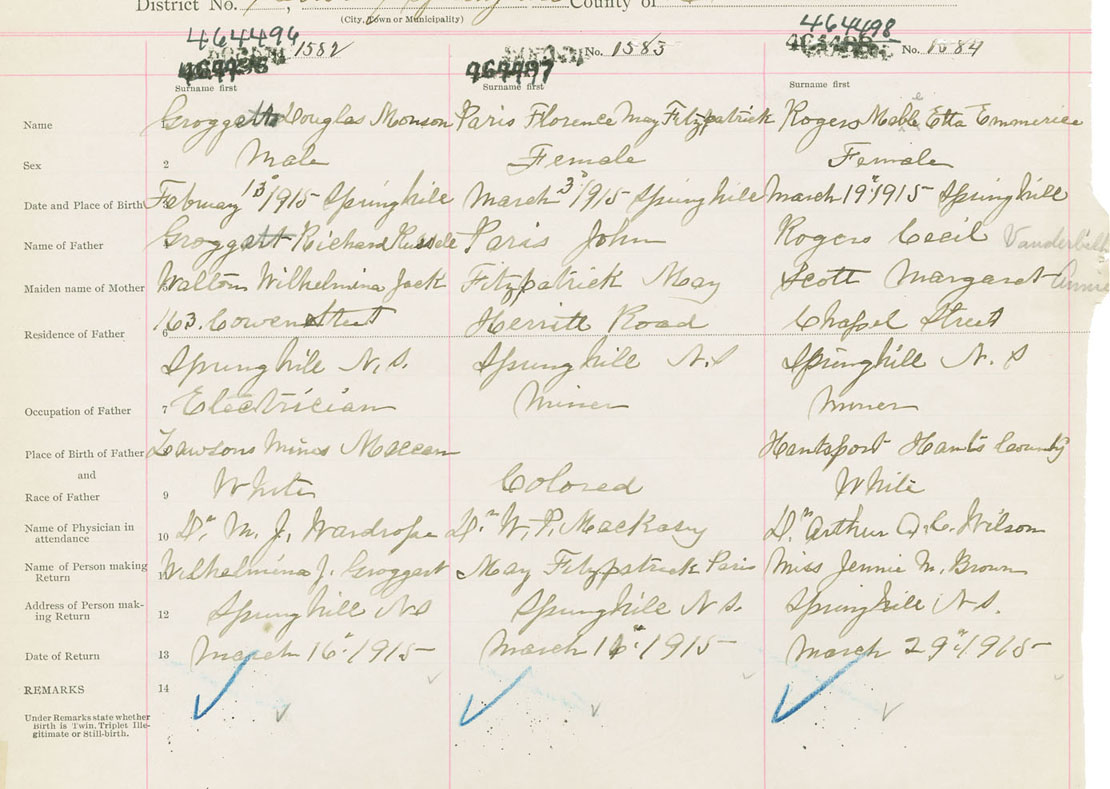 District No. County of
(City, Town or Municipality)
464496 464498
1582 No. 1583 No. 1584
464497
Surname first Surname first Surname first
Name 1 Groggett Douglas Monson Paris Florence May Fitzpatrick Rogers Mable Etta Emmerice
Sex 2 Male Female Female
Date and Place of Birth February 13" 1915 Springhill March 3" 1915 Springhill March 19" 1915 Springhill
Name of Father Groggett Richard Russele Paris John Rogers Cecil Vanderbilt
Maiden name of Mother 5 Walton Wilhelmina Jack Fitzpatrick May Scott Margaret Annie
Residence of Father 6 163 Cowen Street Herrett Road Chapel Street
Springhill N.S. Springhill N.S Springhill N. S
Occupation of Father 7 Electrician Miner Miner
Place of Birth of Father Lawsons Mines Maccan Hantsport Hants County
and
Race of Father 9 White Colored White
Name of Physician in attendance 10 Dr. M. J. Wardrope Dr. W. P. MacKasey Dr. Arthur Q. C. Wilson
Name of Person making Return Wilhelmina J. Groggett May Fitzpatrick Paris Miss Jennie M. Brown
Address of Person mak-ing Return 12 Springhill N S Springhill N S. Springhill N. S.
Date of Return 13 March 16" 1915 March 16" 1915 March 29" 1915
REMARKS 14
Under Remarks state whether
Birth is Twin, Triplet Ille-
gitimate or Still-birth.